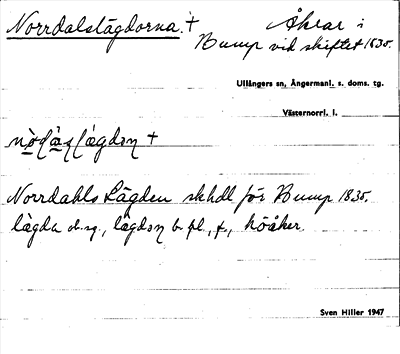 Norrdalstägdorna. † Åkrar i
Bump vid skiftet 1835.
Ullångers sn, Ångermanl. s. doms. tg.
Västernorrl. l.
Norrdahls Lägden skhdl för Bump 1835.
lägda ob. sg., b. pl., f., höåker.
Sven Hiller 1947